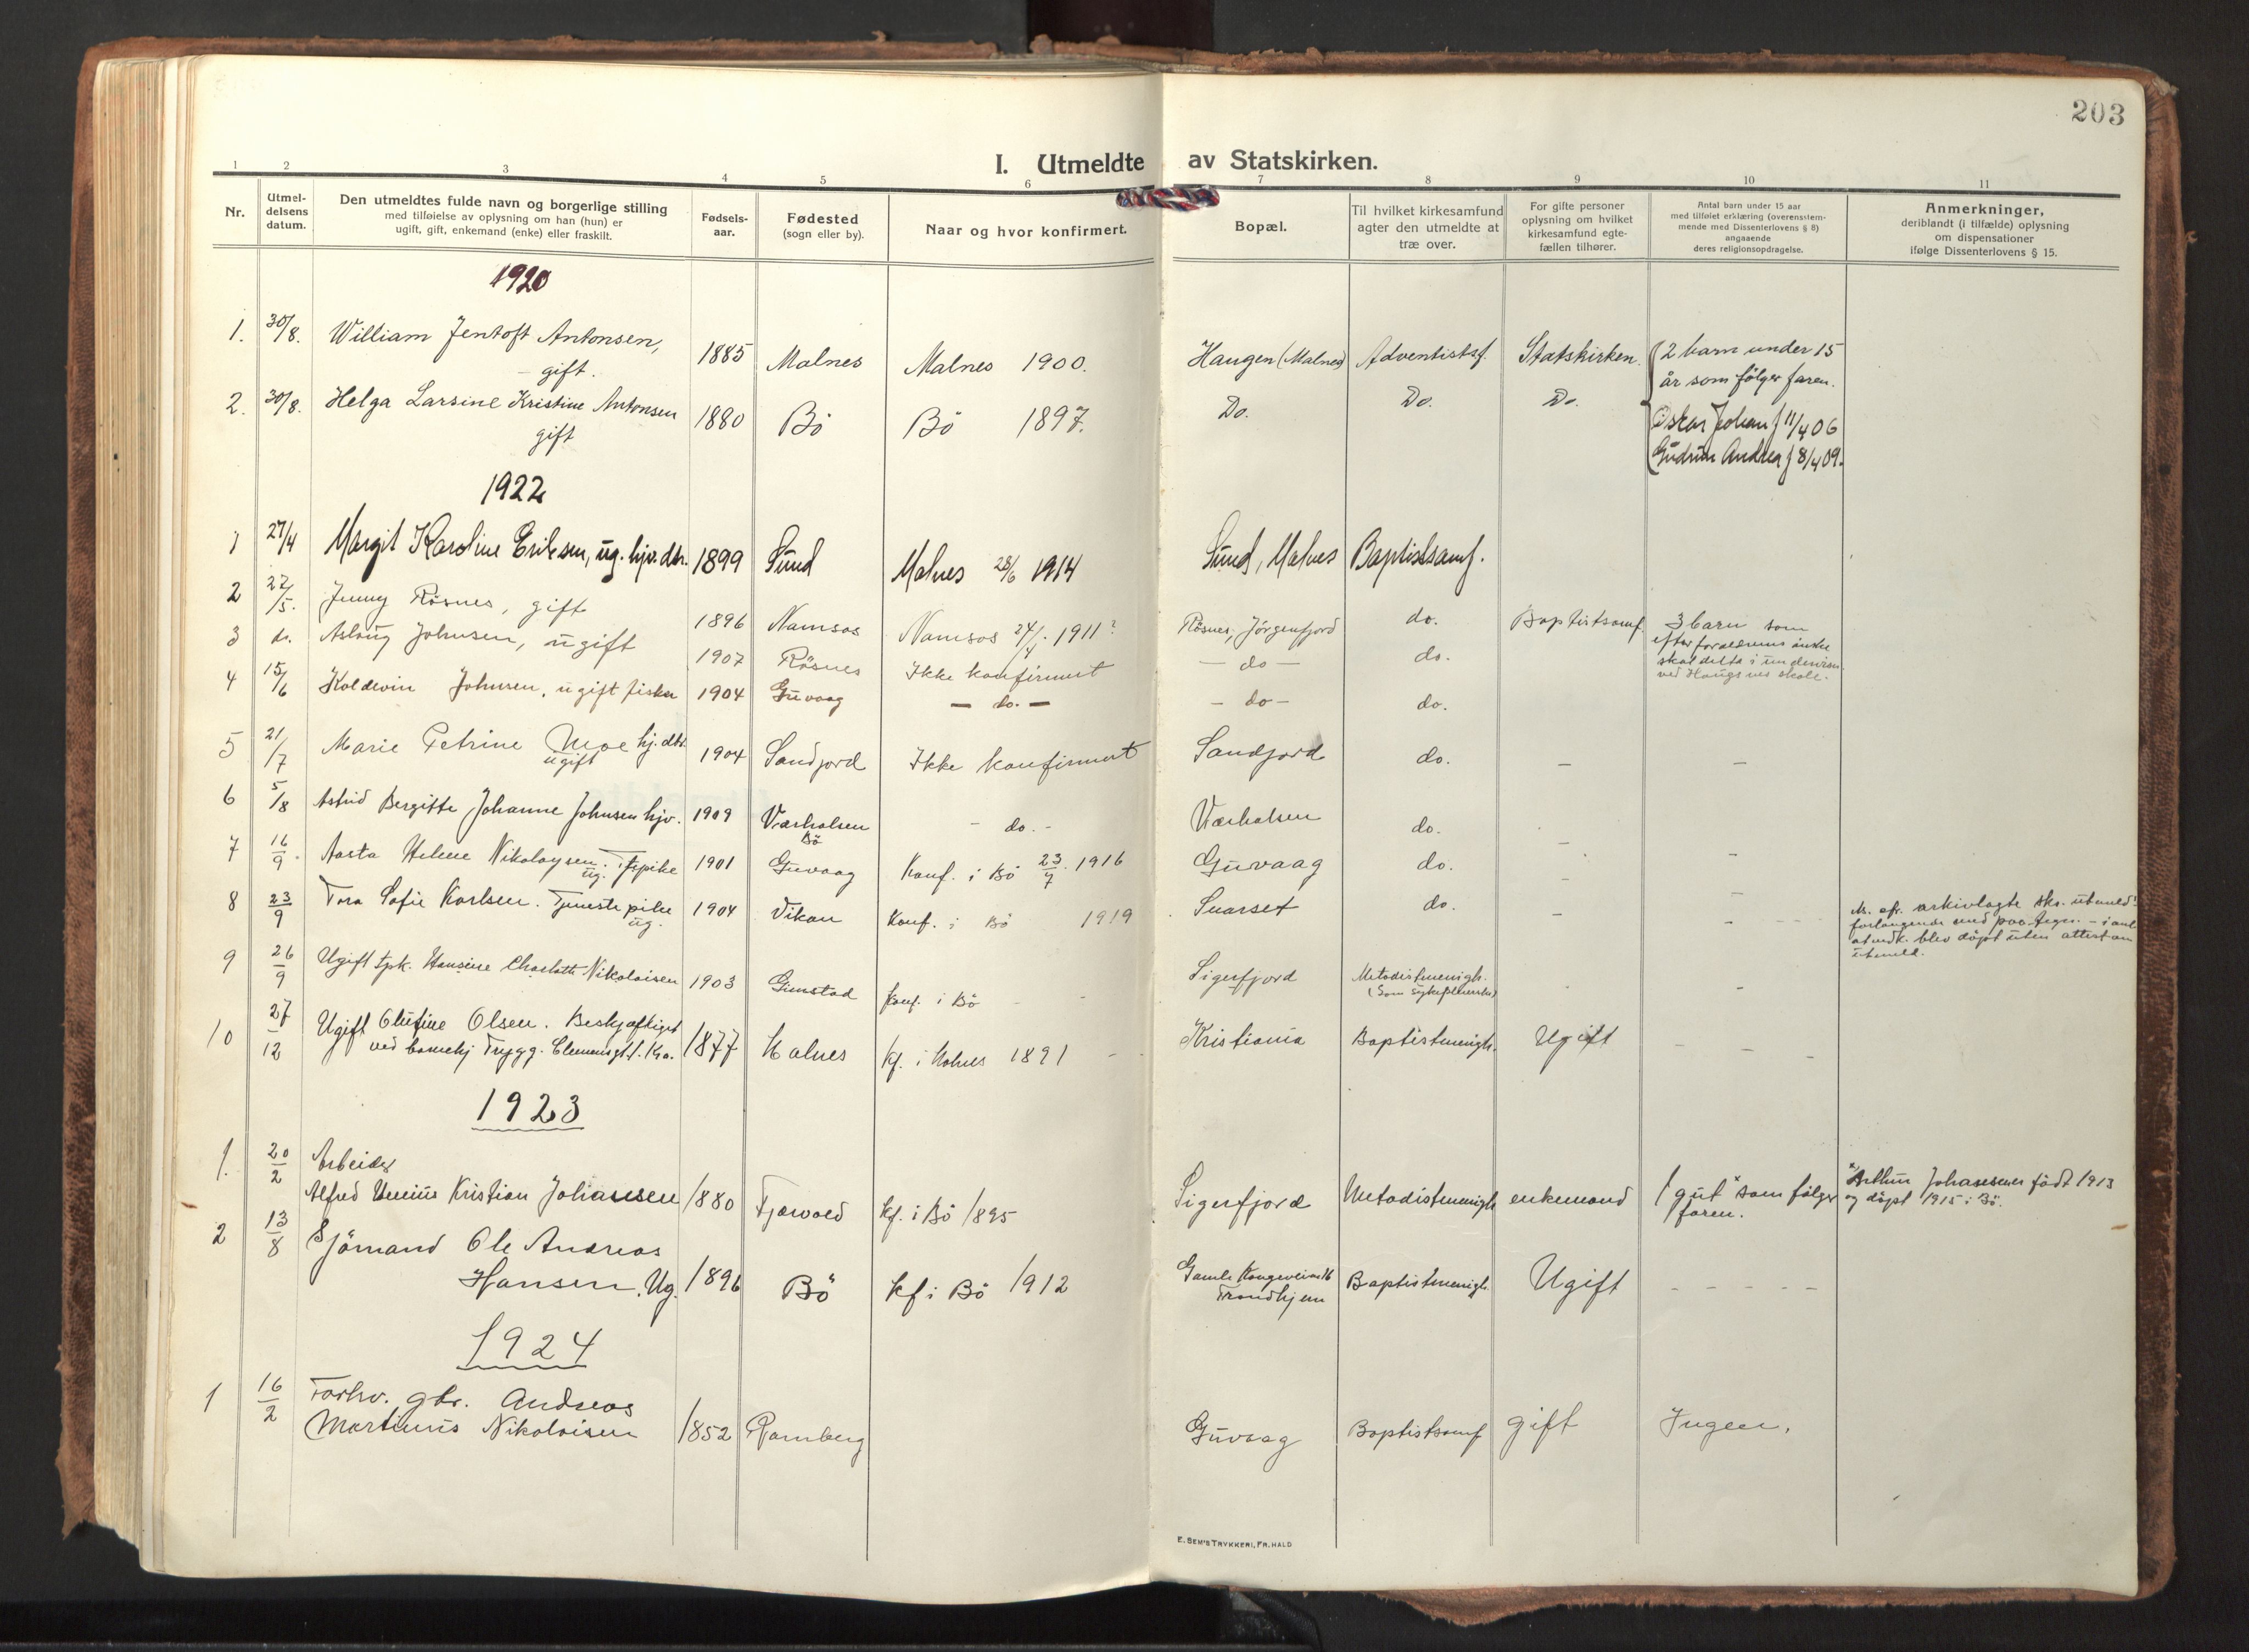 203
I. Utmeldte av Statskirken.
1 2 3 4 5 6 7 8 9 10 11
Nr.
Utmel-
delsens
datum.
Den utmeldtes fulde navn og borgerlige stilling
med tilføielse av oplysning om han (hun) er
ugift, gift, enkemand (enke) eller fraskilt.
Fødsels-
aar.
Fødested
(sogn eller by).
Naar og hvor konfirmert.
Bopæl.
Til hvilket kirkesamfund
agter den utmeldte at
træ over.
For gifte personer
oplysning om hvilket
kirkesamfund egte-
fællen tilhører.
Antal barn under 15 aar
med tilføiet erklæring (overensstem-
mende med Dissenterlovens § 8)
angaaende
deres religionsopdragelse.
Anmerkninger,
deriblandt (i tilfælde) oplysning
om dispensationer
ifølge Dissenterlovens § 15.
1920
1. 30/8. William Jentoft Antonsen, 1885 Malnes Malnes 1900. Haugen (Malnes) Adventistsf. Statskirken 2 barn under 15
gift. år som følger faren.
2. 30/8. Helga Larsine Kristine Antonsen 1880 Bö Bö 1897. Do. Do. Do. Oskar Johan f 11/4 06
gift Gudrun Andrea f 8/4 09.
1922
1 27/4 Margit Karoline Eriksen, ug. hjv. dtr. 1899 Sund Malnes 28/6 1914 Sund, Malnes Baptistsamf.
2 27/5. Jenny Rösnes, gift 1896 Namsos Namsos 24/4. 1911? Rösnes, Jörgenfjord do. Baptistsamf. 3 barn som
efter foraeldrenes önske
3 do. Aslaug Johnsen, ugift 1907 Rösnes Ikke konfirmert — do — do. skal delta i undervisn.
ved skole.
4 15/6 Koldevin Johnsen, ugift fisker 1904 Guvaag — do. — — do — do.
5 21/7 Marie Petrine Moe hj. dtr. 1904 Sandjord Ikke konfirmert Sandjord do. — —
ugift
6 5/8 Astrid Bergitte Johanne Johnsen hjv. 1909 Værholsen - do. - Værholsen do. - -
Bö
7 16/9. Aasta Helene Nikolaysen. Tjpike 1901 Guvaag Konf. i Bö 23/7. 1916 Guvaag do. - -
ug.
8 23/9 Tora Sofie Karlsen. Tjenestepike 1904 Vikan Konf. i Bö 1919 Snarset do. - - - - -
ug.
arkivlagte skr. utmeld.
forlangende med
blev döpt uten attest om
utmeld.
9 26/9 Ugift tpk. Hansine Charlotte Nikolaisen 1903 Gimstad konf. i Bö - - Sigerfjord Metodistmenigh. - -
(Som sykepleierske)
10 27/12 Ugift Olufine Olsen. Beskjæftiget 1877 Malnes kf. i Malnes 1891 - Kristiania Baptistmenigh. Ugift - - -
ved barnehj Trygg. Clemensgt. 1. Kra.
1923
1. 20/2 Arbeider
Alfred Kristian Johansen 1880 Fjærvold kf. i Bö 1895 Sigerfjord Metodistmenigh. enkemand 1 gut x som følger
faren.
x Arthur Johansesen född 1913
og döpt 1915 i Bö.
2 13/8 Sjömand Ole Andreas
Hansen. Ug. 1896 Bö kf i Bö 1912 Gamle Kongeveien 16 Baptistmenigh. Ugift - - - - -
Trondhjem
1924
1 16/2 Forhv. gbr. Andreas
Martinus Nikolaisen 1852 Ramberg Guvaag Baptistsamf gift Ingen.
E. SEM'S TRYKKERI, FR. HALD